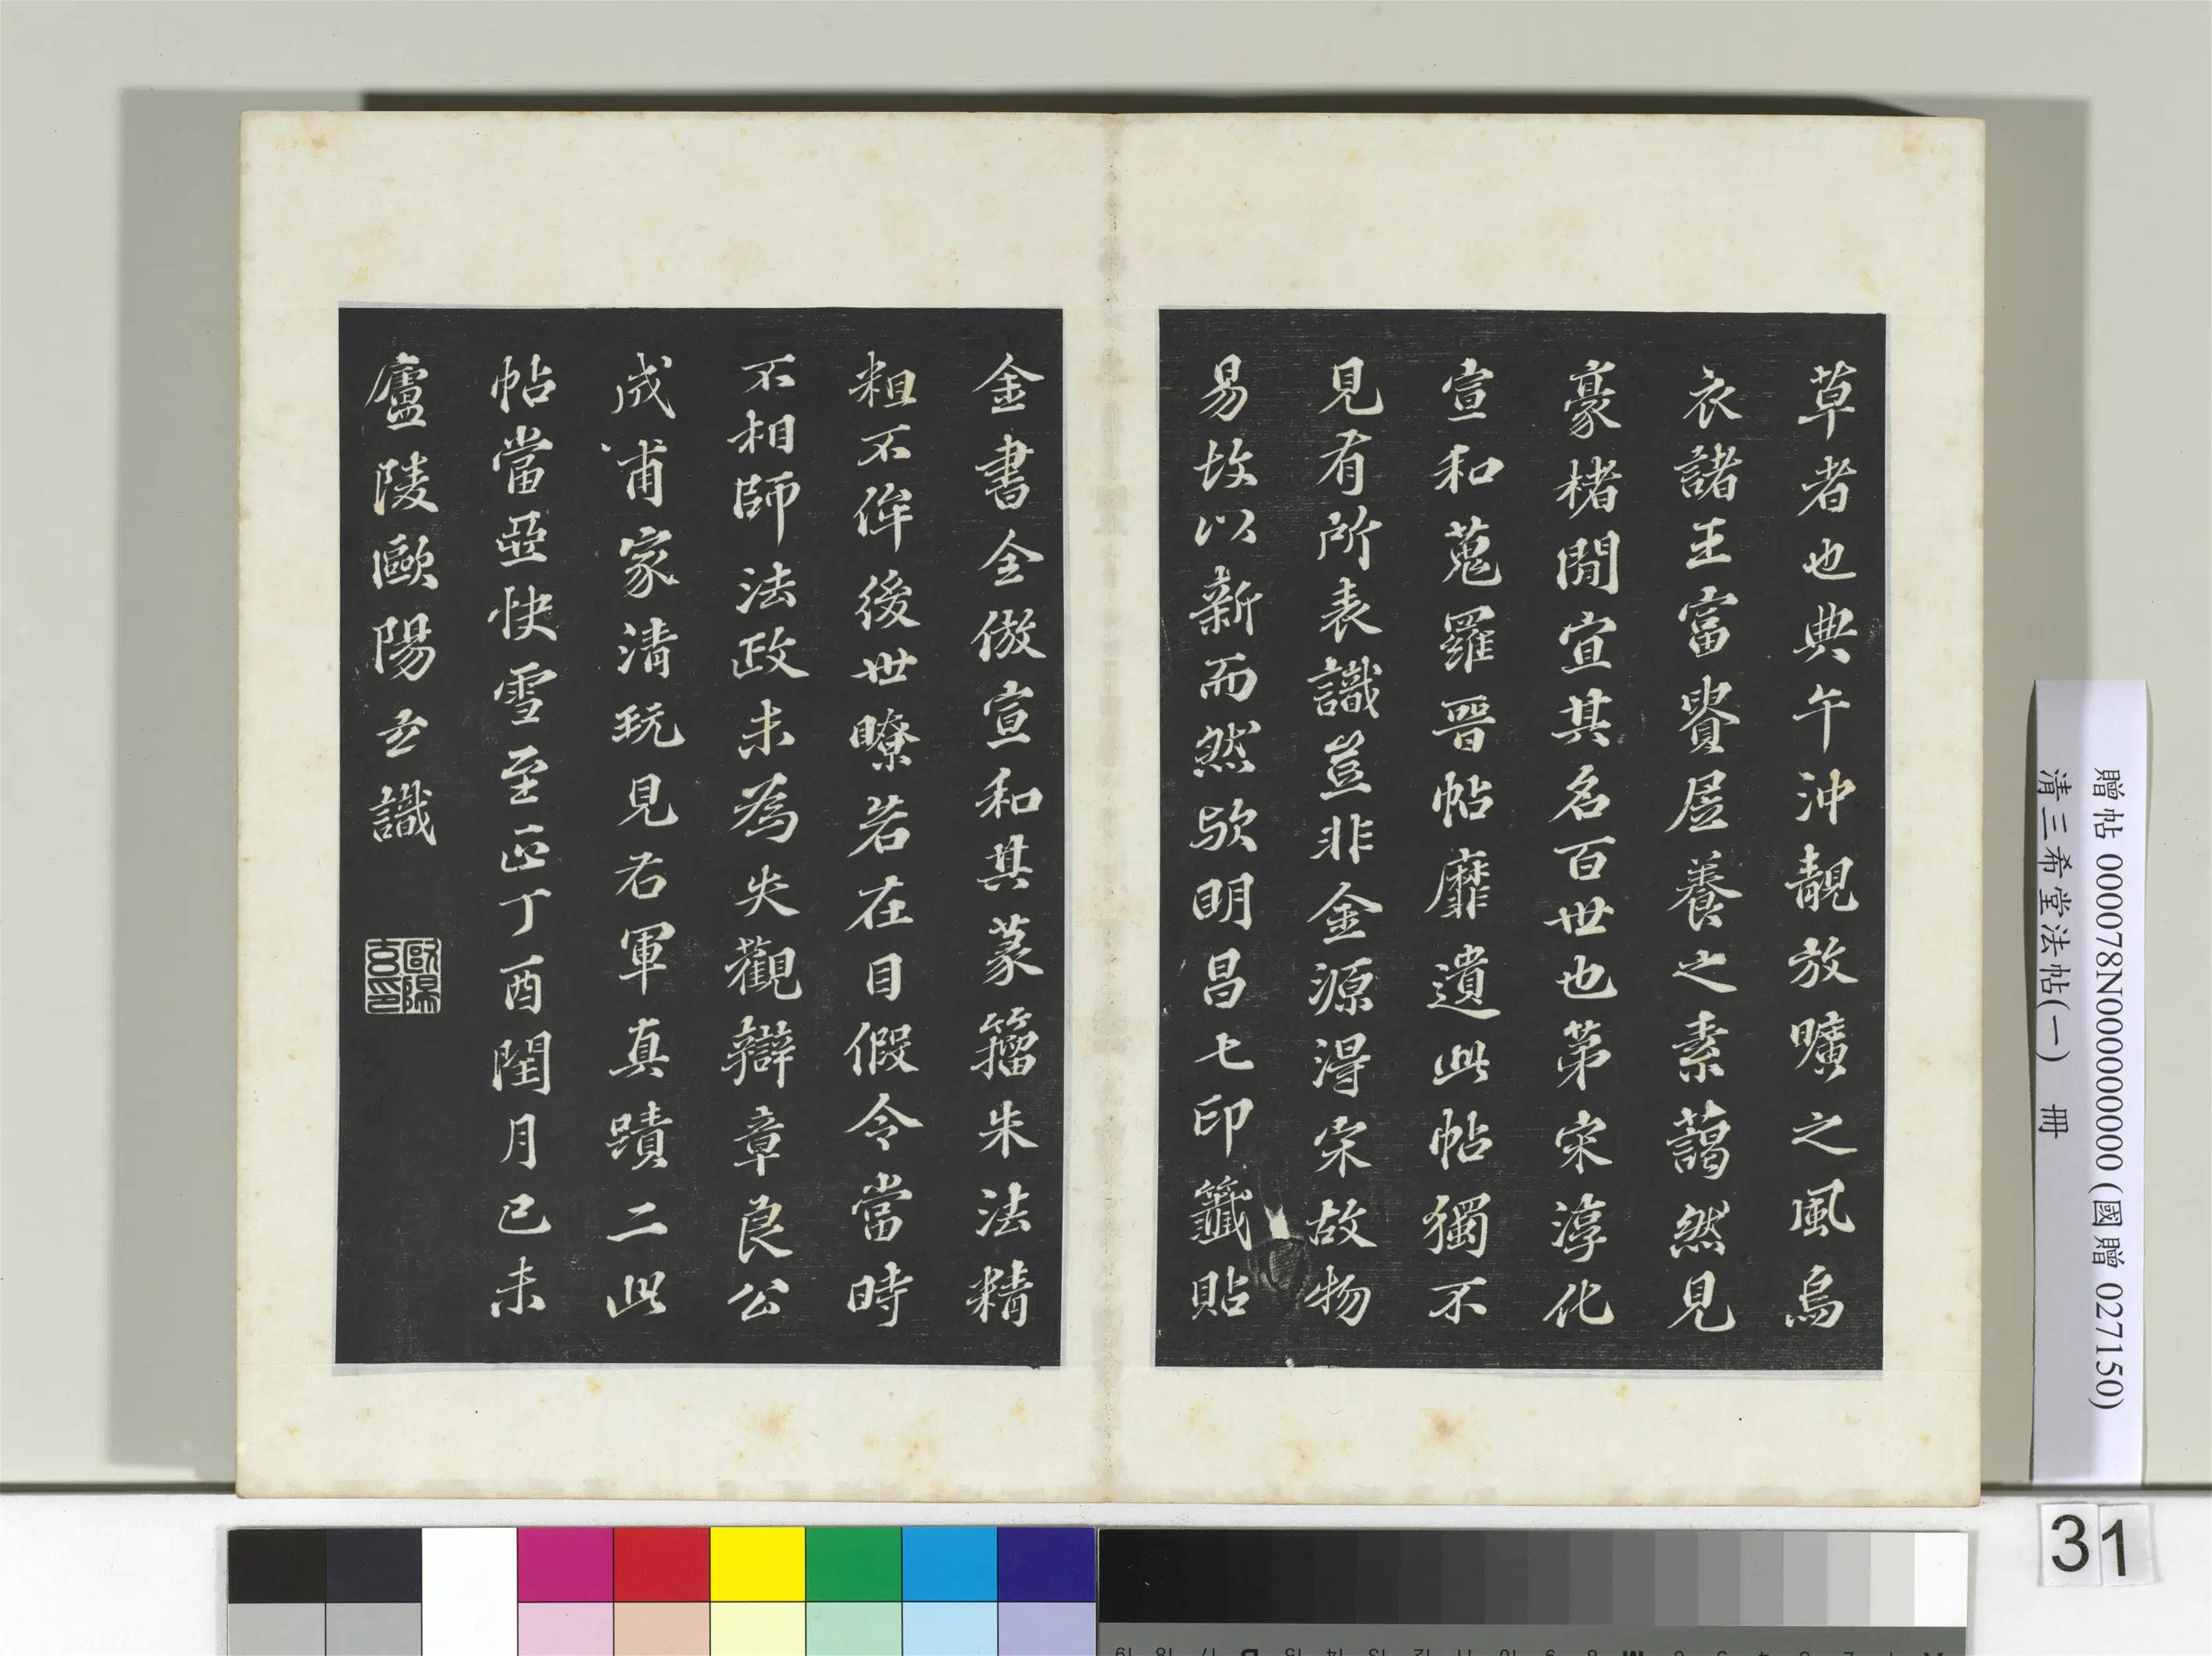 草者也典午沖靚放曠之風烏
衣諸王富貴居養之素藹然見
豪楮間宜其名百世也第宋淳化
宣和蒐羅晉帖靡遺此帖獨不
見有所表識豈非金源淂宋故物
易故以新而然欤明昌七印籤貼
金書全倣宣和其篆籀朱法精
粗不侔後世瞭若在目假令當時
不相師法政未為失觀辯章良公
成甫家清玩見右軍真蹟二此
帖當亞快雪至正丁酉閏月己未
廬陵歐陽玄識
歐陽玄印
贈帖 000078N000000000 (國贈 027150)
清三希堂法帖(一) 冊
31